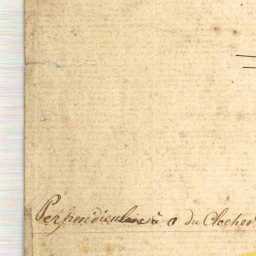 Perpendiculaire à 0 du Clocher